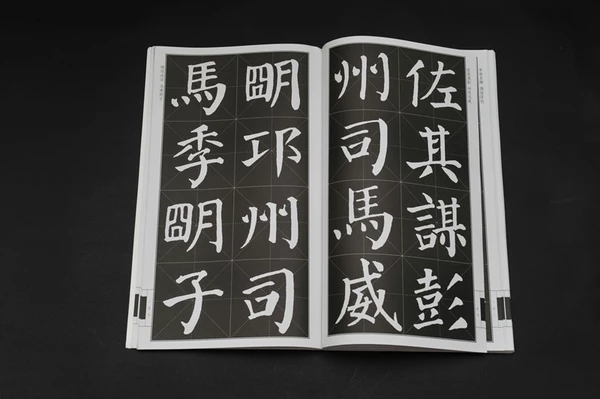 佐其謀彭
州司馬威
明邛州司
馬季明子